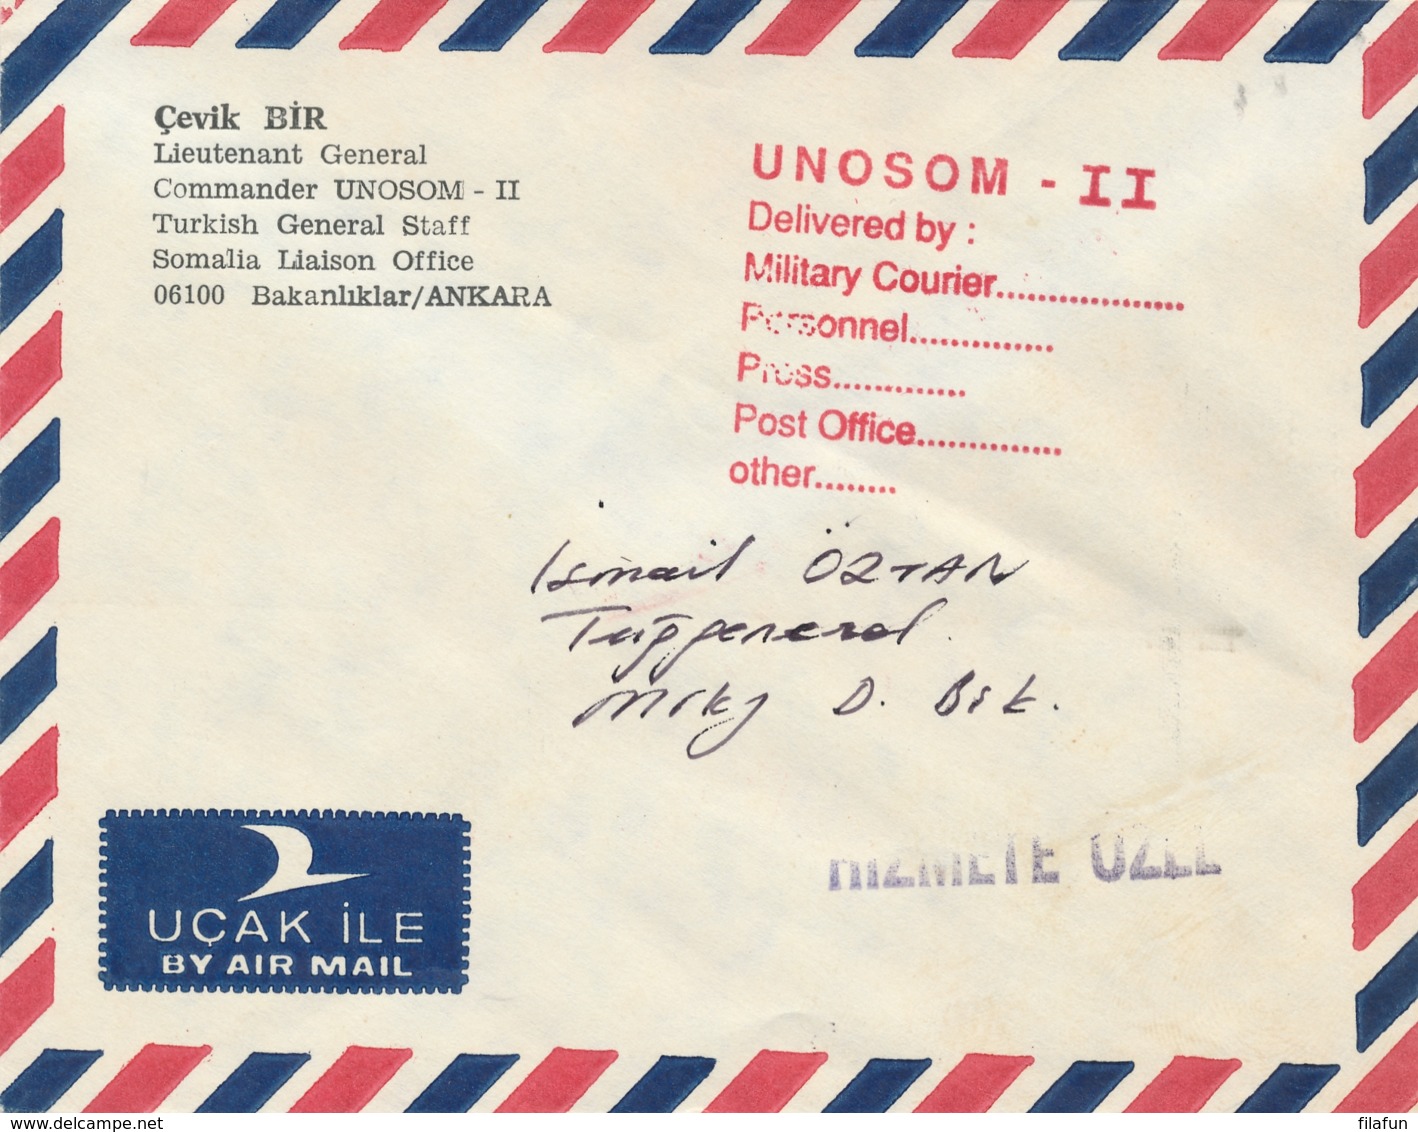 Çevik BİR
Lieutenant General
Commander UNOSOM - II
Turkish General Staff
Somalia Liaison Office
06100 Bakanlıklar/ANKARA
UNOSOM - II
Delivered by :
Military Courier..................
Personnel..............
Press.............
Post Office..............
other........
İsmail ÖZTAN
Tuğgeneral
D.
HİZMETE ÖZEL
UÇAK İLE
BY AIR MAIL
www.delcampe.net
filafun